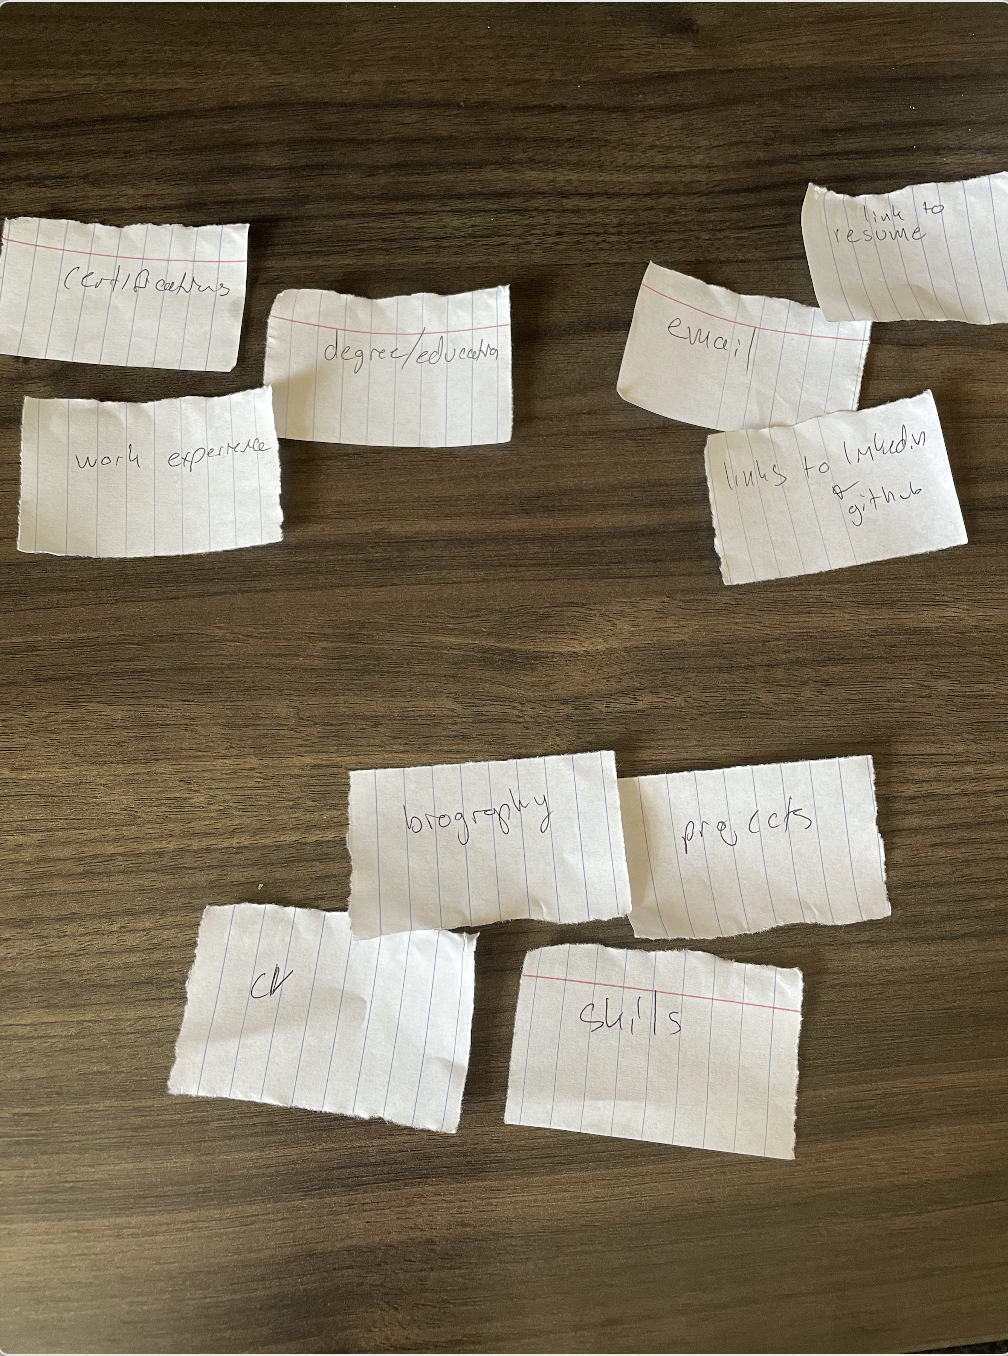 certifications
degree/education
work experience
link to
resume
email
links to linkedin
&
github
biography
projects
CV
skills